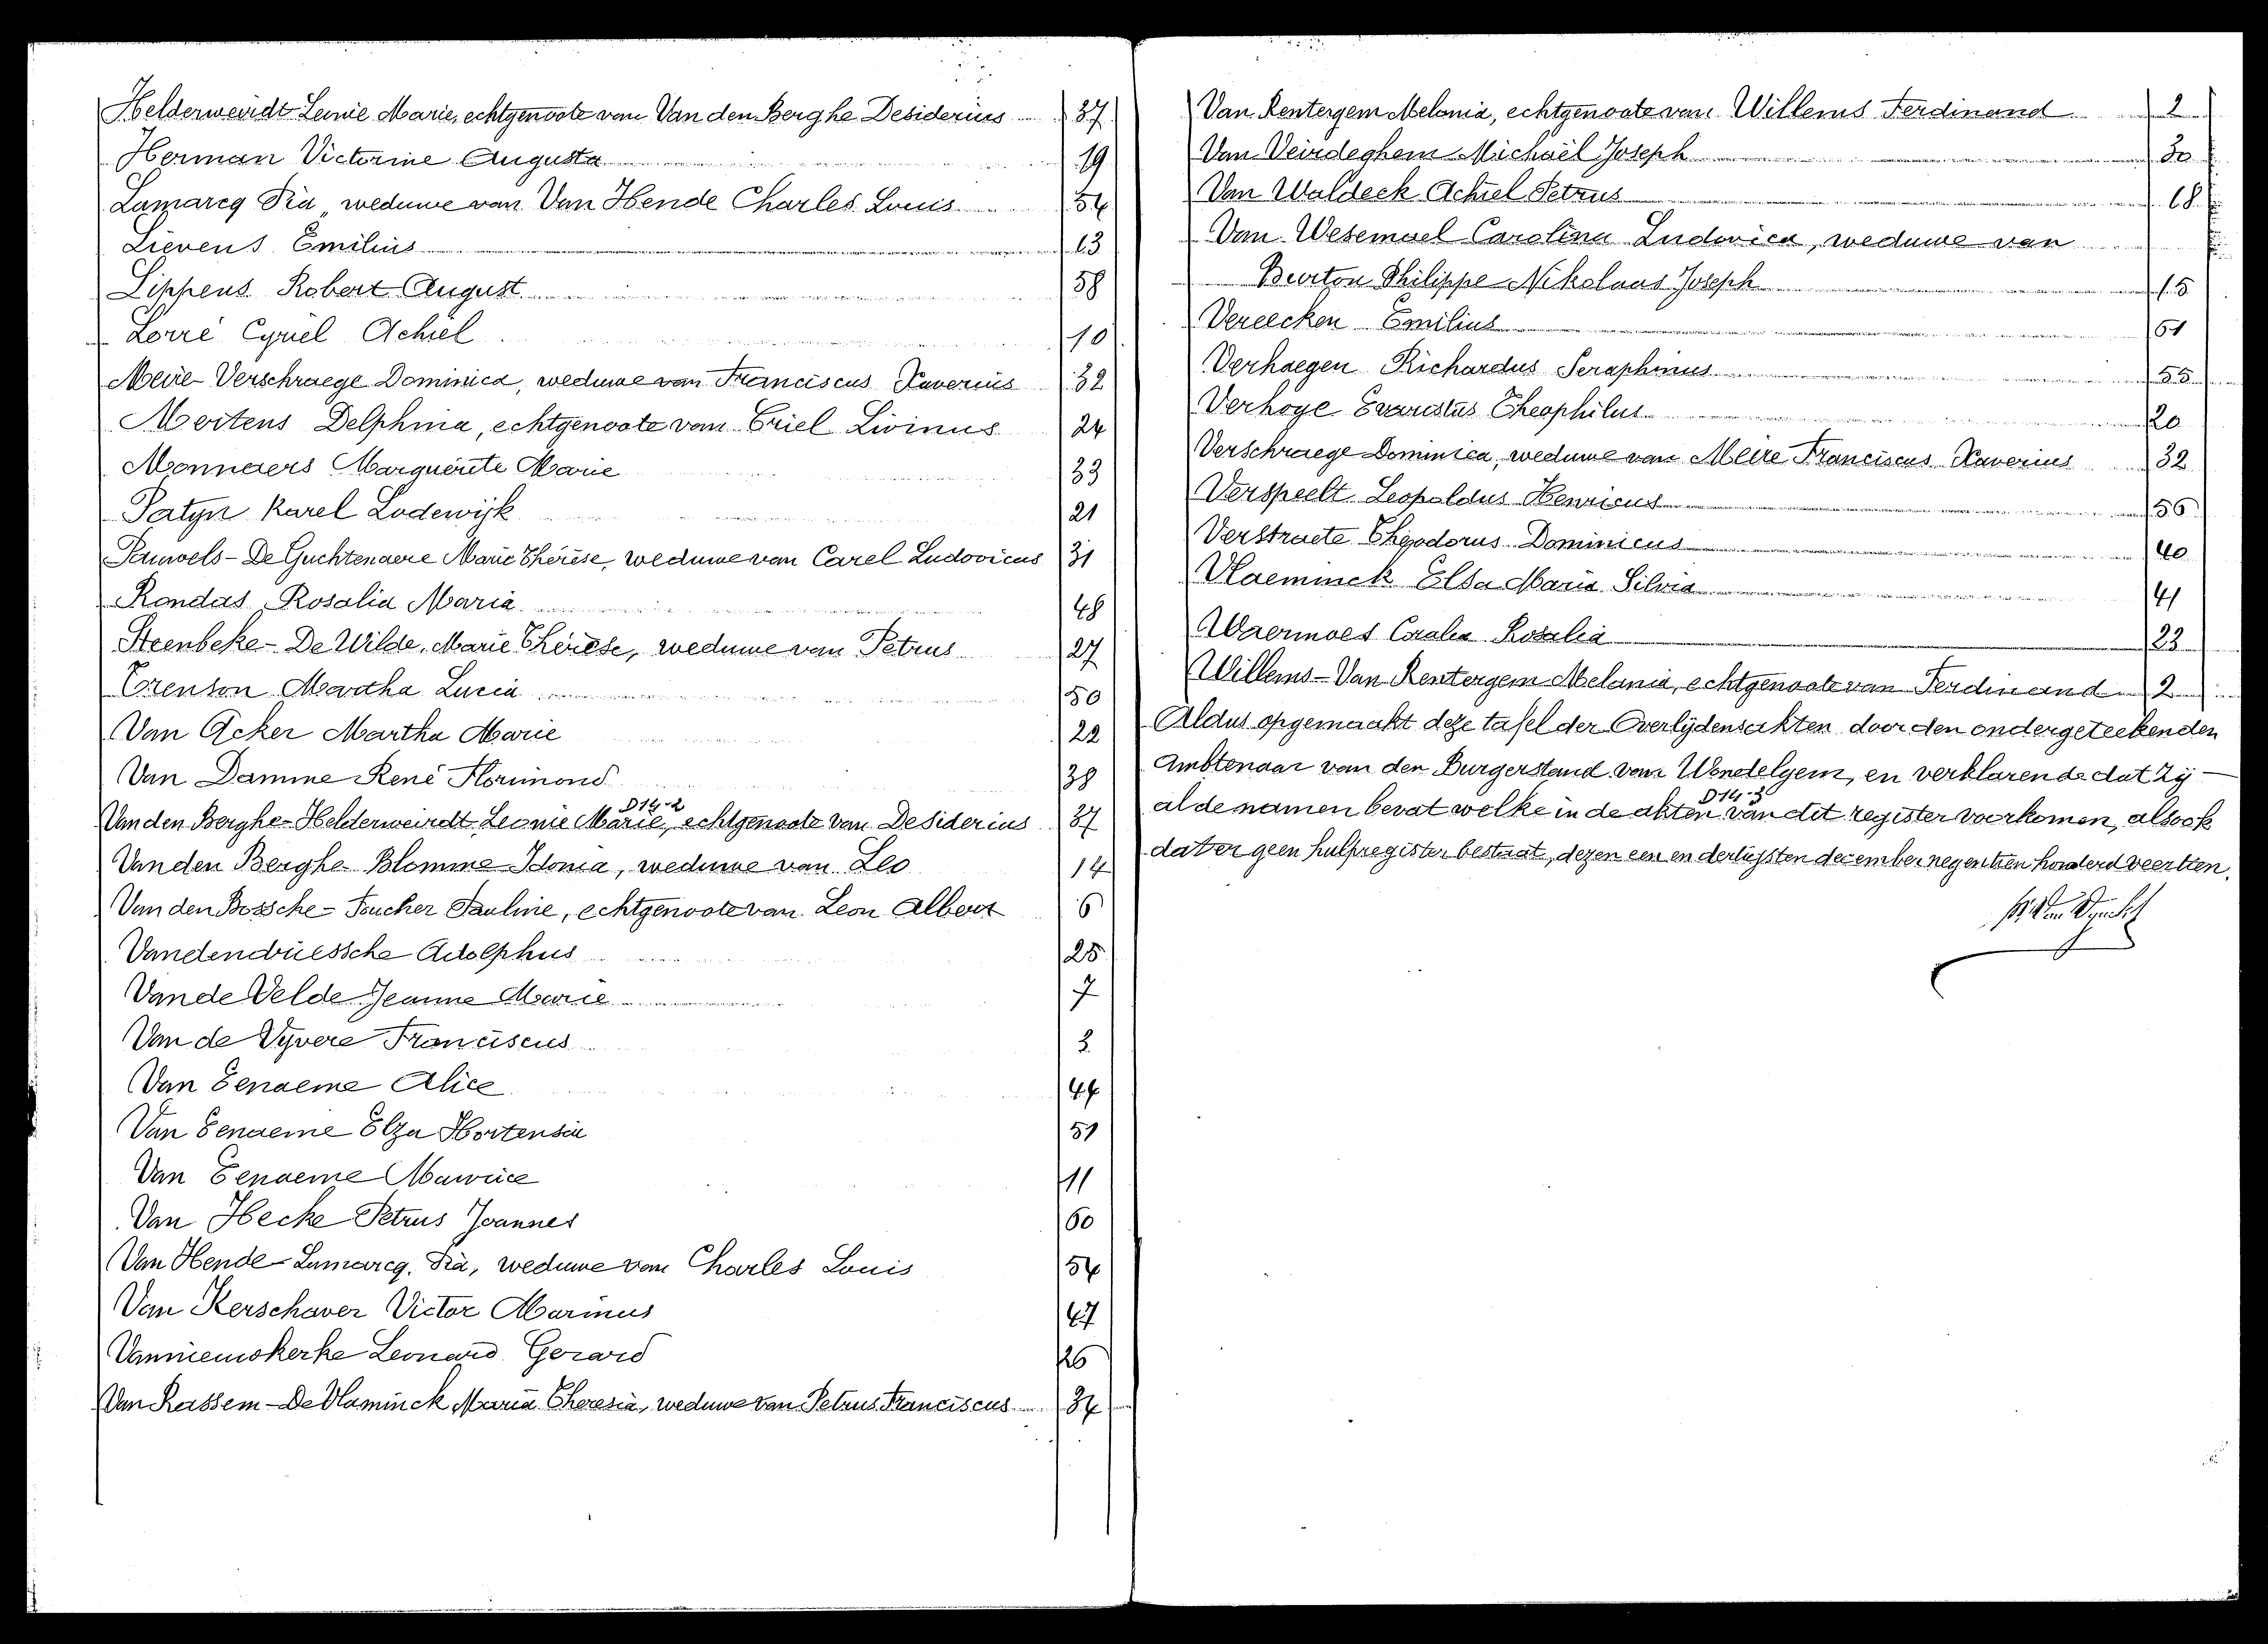 Helderweirdt Leonie Marie, echtgenoote van Van den Berghe Desiderius 37
Herman Victorine Augusta 19
Lamarcq Pia, weduwe van Van Hende Charles Louis 54
Lievens Emilius 13
Lippens Robert August 58
Lorré Cyriel Achiel 10
Meire-Verschraege Dominica, weduwe van Franciscus Xaverius 32
Mertens Delphina, echtgenoote van Criel Livinus 24
Monnaers Marguerite Marie 33
Patyn Karel Lodewijk 21
Pauwels-De Guchtenaere Marie Thérèse, weduwe van Carel Ludovicus 31
Rondas Rosalia Maria 48
Steenbeke-De Wilde, Marie Thérèse, weduwe van Petrus 27
Trenson Martha Lucia 50
Van Acker Martha Marie 22
Van Damme René Florimond 38
D14-2
Van den Berghe-Helderweirdt Leonie Marie, echtgenoote van Desiderius 37
Van den Berghe-Blomme Idonia, weduwe van Leo 14
Van den Bossche-Foucher Pauline, echtgenoote van Leon Albert 6
Vandendriessche Adolphus 25
Van de Velde Jeanne Marie 7
Van de Vyvere Franciscus 3
Van Eenaeme Alice 44
Van Eenaeme Elza Hortensia 51
Van Eenaeme Maurice 11
Van Hecke Petrus Joannes 60
Van Hende-Lamarcq, Pia, weduwe van Charles Louis 54
Van Kerschaver Victor Marinus 47
Vannieuwkerke Leonard Gerard 26
Van Rassem-De Vlaminck Maria Theresia, weduwe van Petrus Franciscus 34
Van Rentergem Melania, echtgenoote van Willems Ferdinand 2
Van Veirdeghem Michaël Joseph 30
Van Waldeck Achiel Petrus 18
Van Wesemael Carolina Ludovica, weduwe van
Burton Philippe Nikolaas Joseph 15
Vereecken Emilius 61
Verhaegen Richardus Seraphinus 55
Verhoye Evaristus Theophilus 20
Verschraege Dominica, weduwe van Meire Franciscus Xaverius 32
Verspeelt Leopoldus Henricus 56
Verstraete Theodorus Dominicus 40
Vlaeminck Elsa Maria Silvia 41
Waermoes Coralia Rosalia 23
Willems-Van Rentergem Melania, echtgenoote van Ferdinand 2
Aldus opgemaakt deze tafel der Overlydensakten door den ondergeteekenden
Ambtenaar van den Burgerstand van Wondelgem, en verklarende dat zij
D14-3
al de namen bevat welke in de akten van dit register voorkomen, alsook
dat er geen hulpregister bestaat, dezen een en dertigsten december negentien honderd veertien.